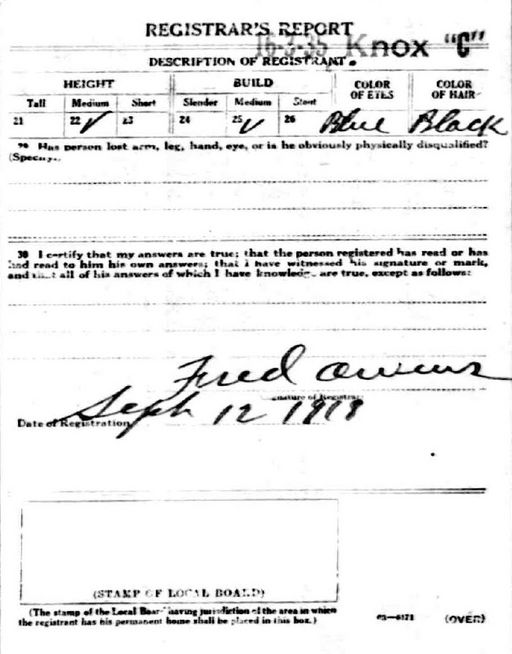 REGISTRAR'S REPORT
16-3-35 Knox "C"
DESCRIPTION OF REGISTRANT
HEIGHT BUILD COLOR OF EYES COLOR OF HAIR
Tall Medium Short Slender Medium Stout
21 22 ✓ 23 24 25 ✓ 26 Blue Black
29 Has person lost arm, leg, hand, eye, or is he obviously physically disqualified?
(Specify.)
30 I certify that my answers are true; that the person registered has read or has
had read to him his own answers; that I have witnessed his signature or mark,
and that all of his answers of which I have knowledge are true, except as follows:
Fred Owens
Signature of Registrar
Date of Registration Sept 12 1918
(STAMP OF LOCAL BOARD)
(The stamp of the Local Board having jurisdiction of the area in which
the registrant has his permanent home shall be placed in this box.)
03—6171 (OVER)